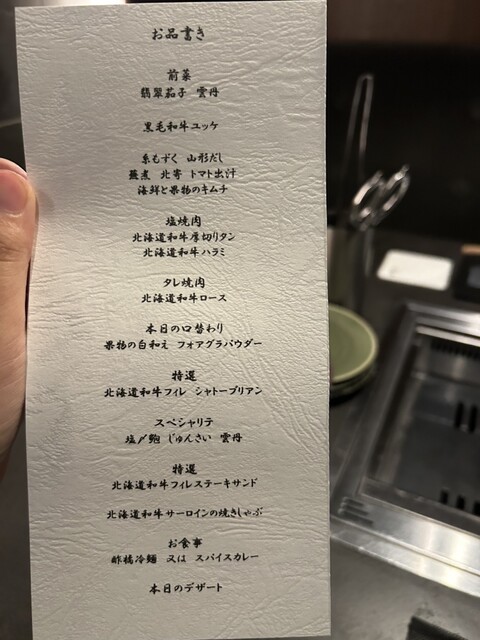 お品書き
前菜
翡翠茄子 雲丹
黒毛和牛ユッケ
糸もずく 山形だし
蕪煮 北寄 トマト出汁
海鮮と果物のキムチ
塩焼肉
北海道和牛厚切りタン
北海道和牛ハラミ
タレ焼肉
北海道和牛ロース
本日の口替わり
果物の白和え フォアグラパウダー
特選
北海道和牛フィレ シャトーブリアン
スペシャリテ
塩〆鮑 じゅんさい 雲丹
特選
北海道和牛フィレステーキサンド
北海道和牛サーロインの焼きしゃぶ
お食事
酢橘冷麺 又は スパイスカレー
本日のデザート